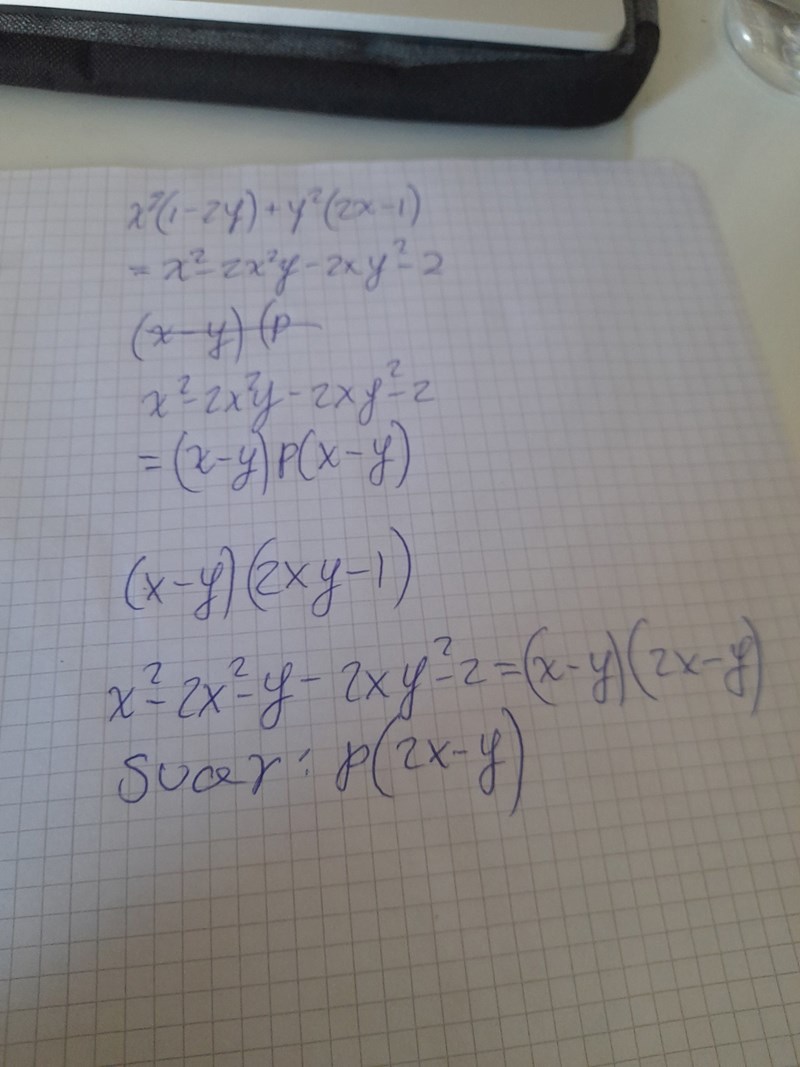 x²(1-2y)+y²(2x-1)
= x²-2x²y-2xy²-2
(x-y)(p
x²-2x²y-2xy²-2
=(x-y)p(x-y)
(x-y)(2xy-1)
x²-2x²-y-2xy²-2=(x-y)(2x-y)
Svar: p(2x-y)